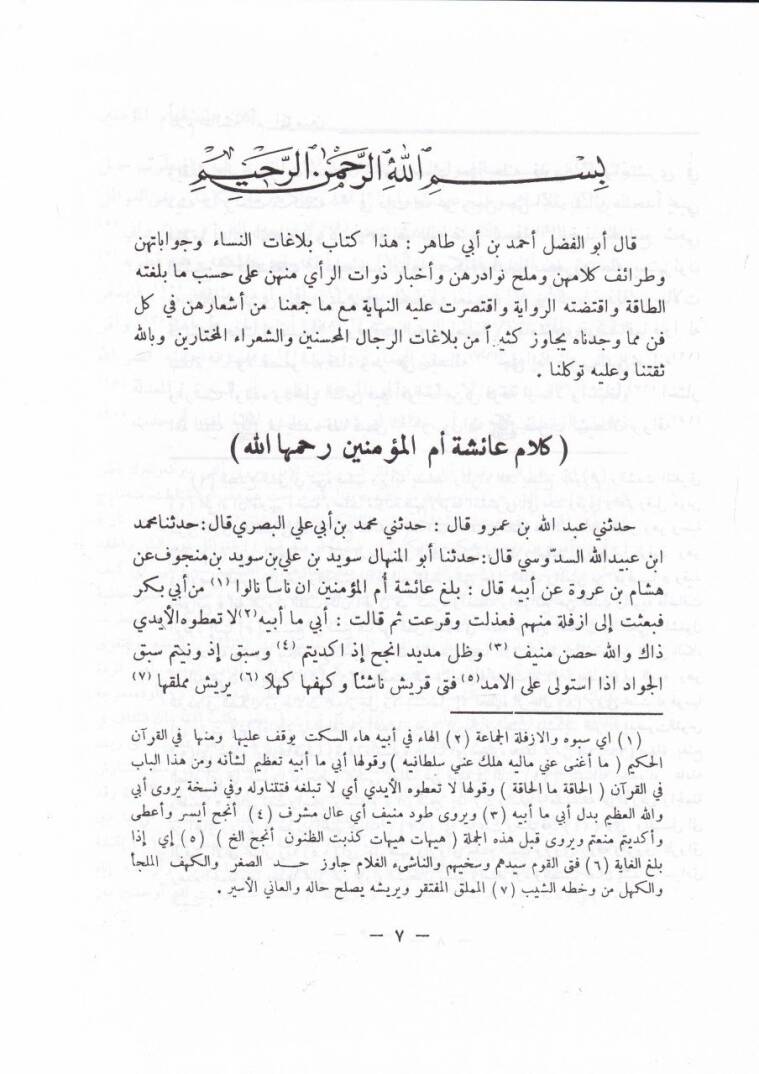 بِسْمِ اللَّهِ الرَّحْمَنِ الرَّحِيمِ
قال أبو الفضل أحمد بن أبي طاهر : هذا كتاب بلاغات النساء وجواباتهن
وطرائف كلامهن وملح نوادرهن وأخبار ذوات الرأي منهن على حسب ما بلغته
الطاقة واقتضته الرواية واقتصرت عليه النهاية مع ما جمعنا من أشعارهن في كل
فن مما وجدناه يجاوز من بلاغات الرجال المحسنين والشعراء المختارين وبالله
ثقتنا وعليه توكلنا .
( كلام عائشة أم المؤمنين رحمها الله )
حدثني عبد الله بن عمرو قال : حدثني محمد بن أبي علي البصري قال : حدثنا محمد
ابن عبيد الله السدّوسي قال : حدثنا أبو المنهال سويد بن علي بن سويد بن منجوف عن
هشام بن عروة عن أبيه قال : بلغ عائشة أم المؤمنين ان ناساً نالوا (١) من أبي بكر
فبعثت إلى ازفلة منهم فعذلت وقرعت ثم قالت : أبي ما أبيه (٢) لا تعطوه الأيدي
ذاك والله حصن منيف (٣) وظل مديد انجح إذ اكديتم (٤) وسبق إذ ونيتم سبق
الجواد اذا استولى على الامد (٥) فتى قريش ناشئاً وكهفها كهلا (٦) يريش مملقها (٧)
(١) اي سبوه والازفلة الجماعة (٢) الهاء في أبيه هاء السكت يوقف عليها ومنها في القرآن
الحكيم ( ما أغنى عني ماليه هلك عني سلطانيه ) وقولها أبي ما أبيه تعظيم لشأنه ومن هذا الباب
في القرآن ( الحاقة ما الحاقة ) وقولها لا تعطوه الأيدي أي لا تبلغه فتتناوله وفي نسخة يروى أبي
والله العظيم بدل أبي ما أبيه (٣) ويروى طود منيف أي عال مشرف (٤) أنجح أيسر وأعطى
أكديتم منعتم ويروى قبل هذه الجملة ( هيهات هيهات كذبت الظنون أنجح الخ ) (٥) إي إذا
بلغ الغاية (٦) فتى القوم سيدهم وسخيهم والناشىء الغلام جاوز حد الصغر والكهف الملجأ
والكهل من وخطه الشيب (٧) المملق المفتقر ويريشه يصلح حاله والعاني الأسير .
— ٧ —